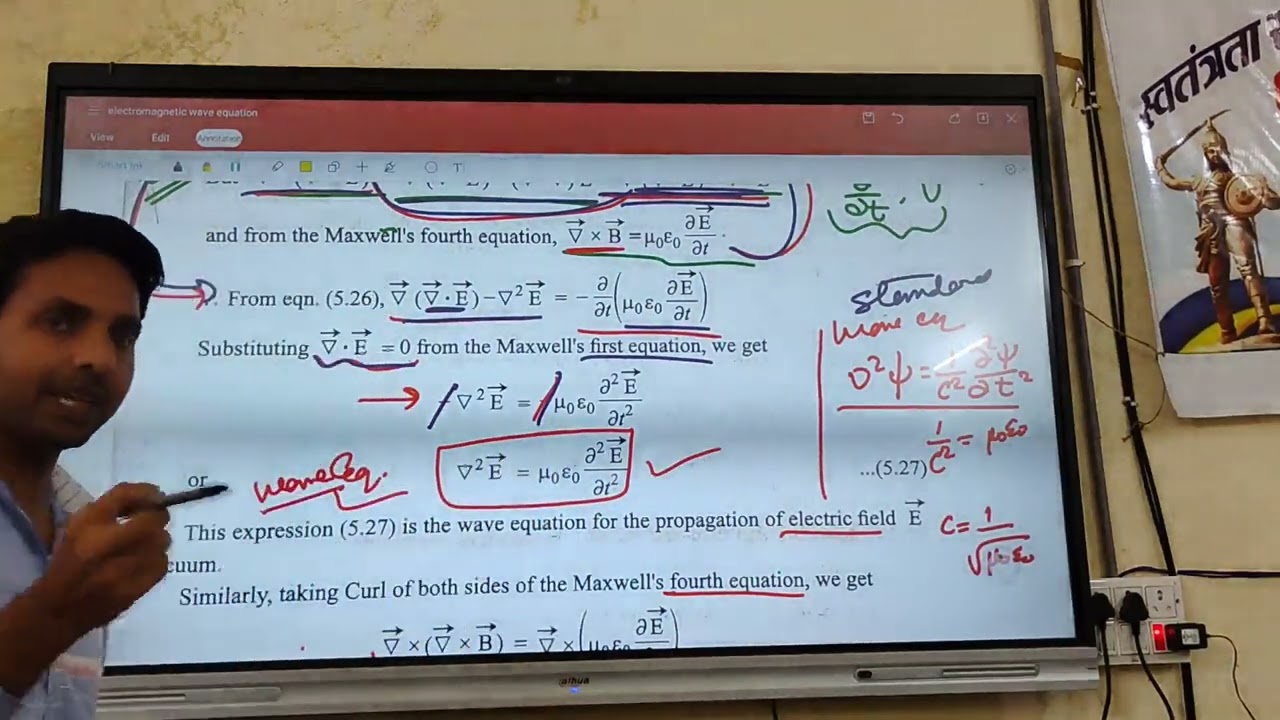 electromagnetic wave equation
View Edit Annotation
and from the Maxwell's fourth equation, $\vec{\nabla} \times \vec{B} = \mu_0 \varepsilon_0 \frac{\partial \vec{E}}{\partial t}$.
$\frac{\partial}{\partial t} \cdot$
From eqn. (5.26), $\vec{\nabla} (\vec{\nabla} \cdot \vec{E}) - \nabla^2 \vec{E} = -\frac{\partial}{\partial t}\left(\mu_0 \varepsilon_0 \frac{\partial \vec{E}}{\partial t}\right)$
Substituting $\vec{\nabla} \cdot \vec{E} = 0$ from the Maxwell's first equation, we get
$\nabla^2 \vec{E} = \mu_0 \varepsilon_0 \frac{\partial^2 \vec{E}}{\partial t^2}$
or $\nabla^2 \vec{E} = \mu_0 \varepsilon_0 \frac{\partial^2 \vec{E}}{\partial t^2}$ ...(5.27)
wave eq.
This expression (5.27) is the wave equation for the propagation of electric field $\vec{E}$
cuum.
Similarly, taking Curl of both sides of the Maxwell's fourth equation, we get
$\vec{\nabla} \times (\vec{\nabla} \times \vec{B}) = \vec{\nabla} \times \left(\mu_0 \varepsilon_0 \frac{\partial \vec{E}}{}\right)$
standard
wave eq
$\nabla^2 \psi = \frac{1}{c^2} \frac{\partial^2 \psi}{\partial t^2}$
$\frac{1}{c^2} = \mu_0 \varepsilon_0$
$c = \frac{1}{\sqrt{\mu_0 \varepsilon_0}}$
alhua
स्वतंत्रता